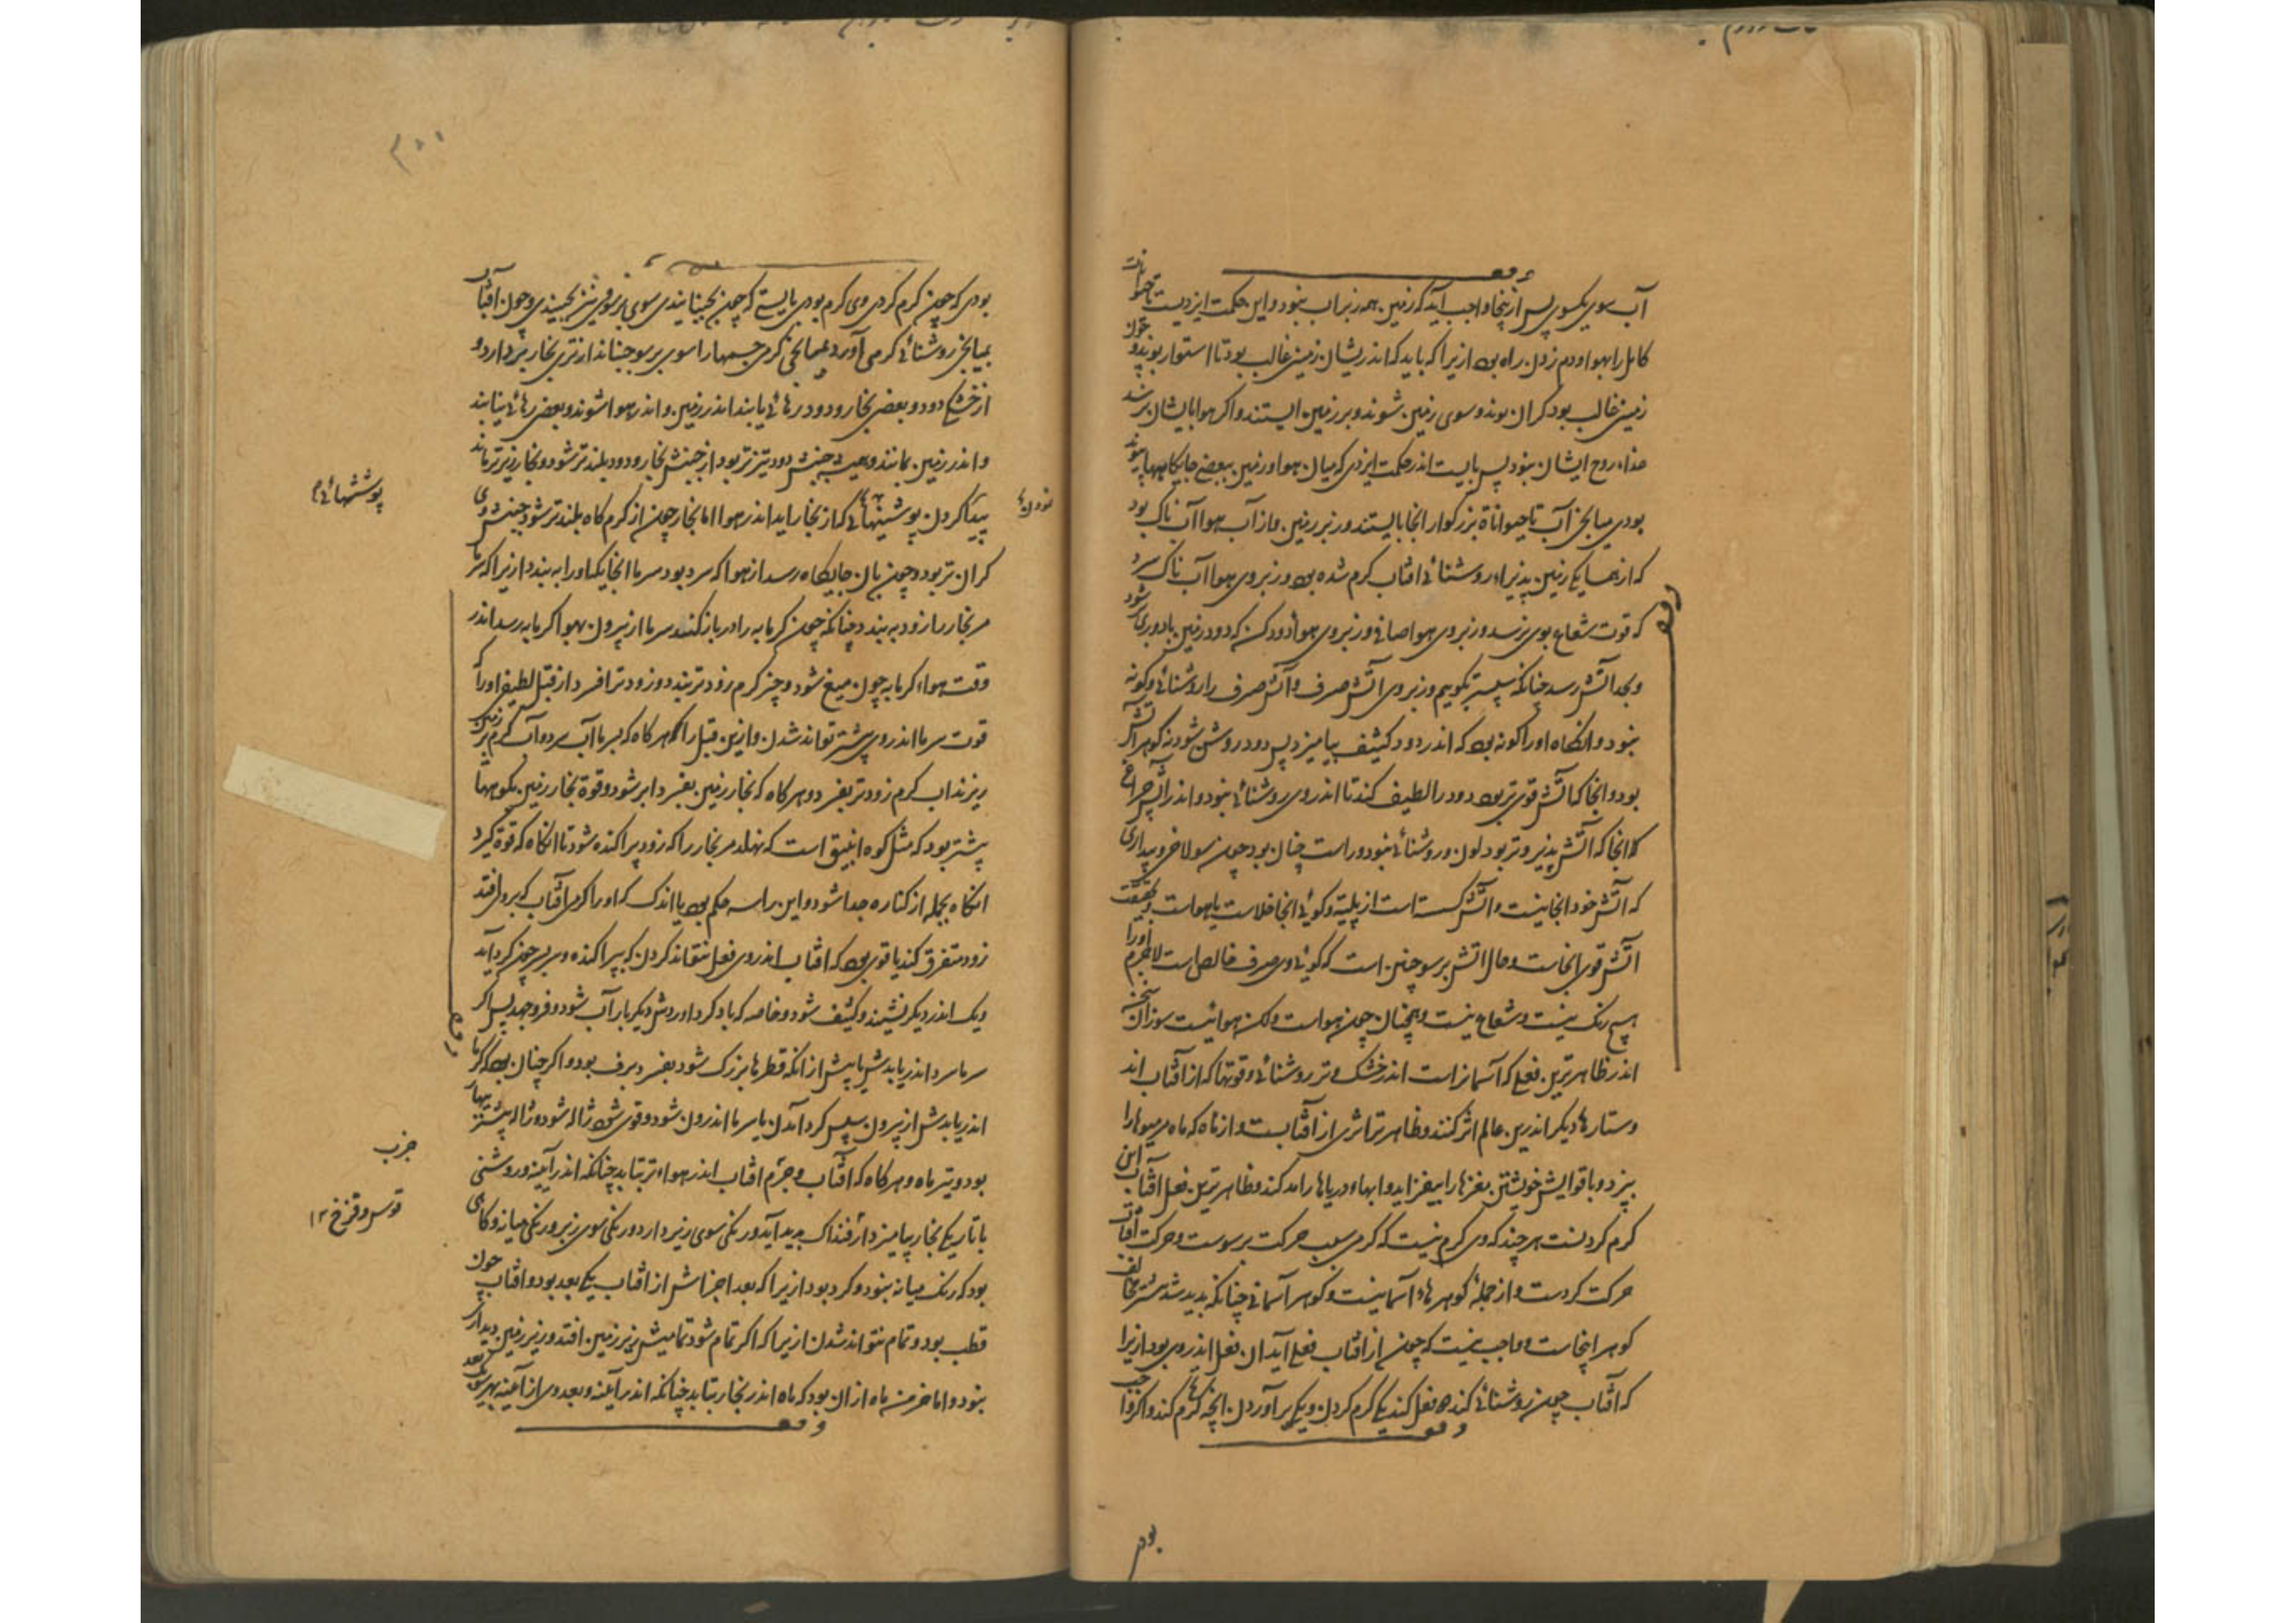 آب سوی یکسوی پس ازینجا واجب آید که زمین همه زیر آب نبود و این حکمت ایزدیست تا حیوانات
کامل را بهوا و دم زدن راه بود ازیرا که باید که اندریشان زمینی غالب بود تا استوار بوند و چون
زمینی غالب بود کران بوند و سوی زمین شوند و بر زمین ایستند و اکر هوا بایشان نرسد
غذاء روح ایشان نبود پس بایست اندر حکمت ایزدی که میان هوا و زمین ببعضی جایکاهها پیوند
بودی میانجی آب تا حیواناة بزرکوار انجا بایستند وز بر زمین و از آب هوا آب ناک بود
که از نهما یکی زمین پذیراء روشنائی افتاب کرم شده بود وز بر وی هوا آب ناک سرد
که قوت شعاع بوی نرسد وز بر وی هوا صافی وز بر وی هواء دودکن که دود زمین با دوری شود
و بحد آتش رسد چنانکه سپستر بکوییم وز بر وی آتش صرف و آتش صرف را روشنائی و کونه
نبود و انکاه او را کونه بود که اندر دود کثیف بیامیزد پس دود روشن شود نه کوهر آتش
بود و انجا که آتش قوی تر بود دود را لطیف کند تا اندر وی روشنائی نبود و اندر آتش چراغ
که انجا که آتش پذیر وتر بود لون و روشنائی نبود و راست چنان بود چون سولاخی و پیداری
که آتش خود انجا نیست و آتش کسسته است از پلیته و کوئی انجا خلاست یا هواست و بحقیقت
آتش قوی انجاست و حال اتش بر سو چنین است که کوئی وی صرف خالص است لاجرم او را
هیچ رنک نیست و شعاع نیست و همچنان چون هواست ولکن هوائیست سوزان سخن
اندر ظاهر ترین فعلی که آسمانراست اندر خشک و تر روشنائی و قوتها که از آفتاب اند
و ستارها دیکر اندرین عالم اثر کنند و ظاهر تر اثری از آفتابست و از ماه که ماه مر میوها را
بپزد و با قوایش خویشتن مغزها را بیفزاید و ابها و دریاها را مد کند و ظاهر ترین فعل آفتاب این
کرم کردنست هرچند که وی کرم نیست که کرمی سبب حرکت بر سوست و حرکت آفتاب
حرکت کردست و از جملهٔ کوهرهاء آسمانیست و کوهر آسمانی چنانکه پدید شد مخالف
کوهر اینجاست و واجب نیست که چون از افتاب فعلی آید ان فعل اندر وی بود ازیرا
که آفتاب چون روشنائی کند ده فعل کند یکی کرم کردن و یکی بر آوردن انچه کرم کند و اکر واجب
بود
بودی که چون کرم کردی وی کرم بودی بایستی که چون بجنبانیدی سوی بر سو وی نیز بجنبیدی و چون آفتاب
بمیانجی روشنائی کرمی آورد و بمیانجی کرمی جسمها را سوی بر سو جنباند از تری بخار بردارد و
از خشکی دود و بعضی بخار و دود رهائی یابند اندر زمین و اندر هوا شوند و بعضی رهائی نیابند
و اندر زمین بمانند و همیشه جنبش دود تیزتر بود از جنبش بخار و دود بلندتر شود و بخار زیرتر ماند
پیدا کردن پوشیتهائی که از بخار اید اندر هوا اما بخار چون از کرم کاه بلندتر شود جنبش وی
کران تر بود و چون بان جایکاه رسد از هوا که سرد بود سرما انجایکه او را به بندد ازیرا که سرما
مر بخار را زود به بندد چنانکه چون کرمابه را در باز کنند سرما از بیرون بهوا کرمابه رسد اندر
وقت هواء کرمابه چون میغ شود و چیز کرم زودتر بندد و زودتر افسرد از قبل لطیفی او را که
قوت سرما اندر وی بیشتر تواند شدن و ازین قبل را که هرکاه که بسرما آب سرد و آب کرم بر زمین
ریزند اب کرم زودتر بفسرد و هرکاه که بخار زمین بفسرد ابر شود و قوة بخار زمین بکوهها
بیشتر بود که مثل کوه انبیق است که نهلد مر بخار را که زود پراکنده شود تا انکاه که قوة کیرد
انکاه بجمله از کناره جدا شود و این را سه حکم بود یا اندک که او را کرمی آفتاب که بر وی افتد
زود متفرق کند یا قوی بود که افتاب اندر وی فعل نتواند کردن که بپراکنده وی بر چیز کرد آید
و یک اندر دیکر نشیند و کثیف شود و خاصه که باد کرد اوردش دیکر بار آب شود و فرو جهد پس اکر
سرما سرد اندر یابدش پیش از انکه قطرها بزرک شود بفسرد برف بود و اکر چنان بود که کرما
اندر یابدش از بیرون سپس کرد آمدن یا سرما اندرون شود و قوی شود ژاله شود و ژاله بیشتر بهار
بود و تیر ماه و هرکاه که آفتاب و جرم افتاب اندر هواء تر بتابد چنانکه اندر آینه و روشنی
با تاریکی بخار بیامیزد از فنداک پدید آید و رنکی سوی زیر دارد و رنکی سوی زبر و رنکی میانه و کاهی
بود که رنک میانه نبود و کرد بود ازیرا که بعد اجزاش از آفتاب یکی بعد بود و آفتاب چون
قطب بود و تمام نتواند شدن ازیرا که اکر تمام شود تمامیش زیر زمین افتد و زیر زمین دیدار
نبود و اما خرمن ماه از ان بود که ماه اندر بخار بتابد چنانکه اندر آینه و بعد وی از آینه بهر سو بعد
پوششهائی
جزب
قوس و قزخ ۱۲